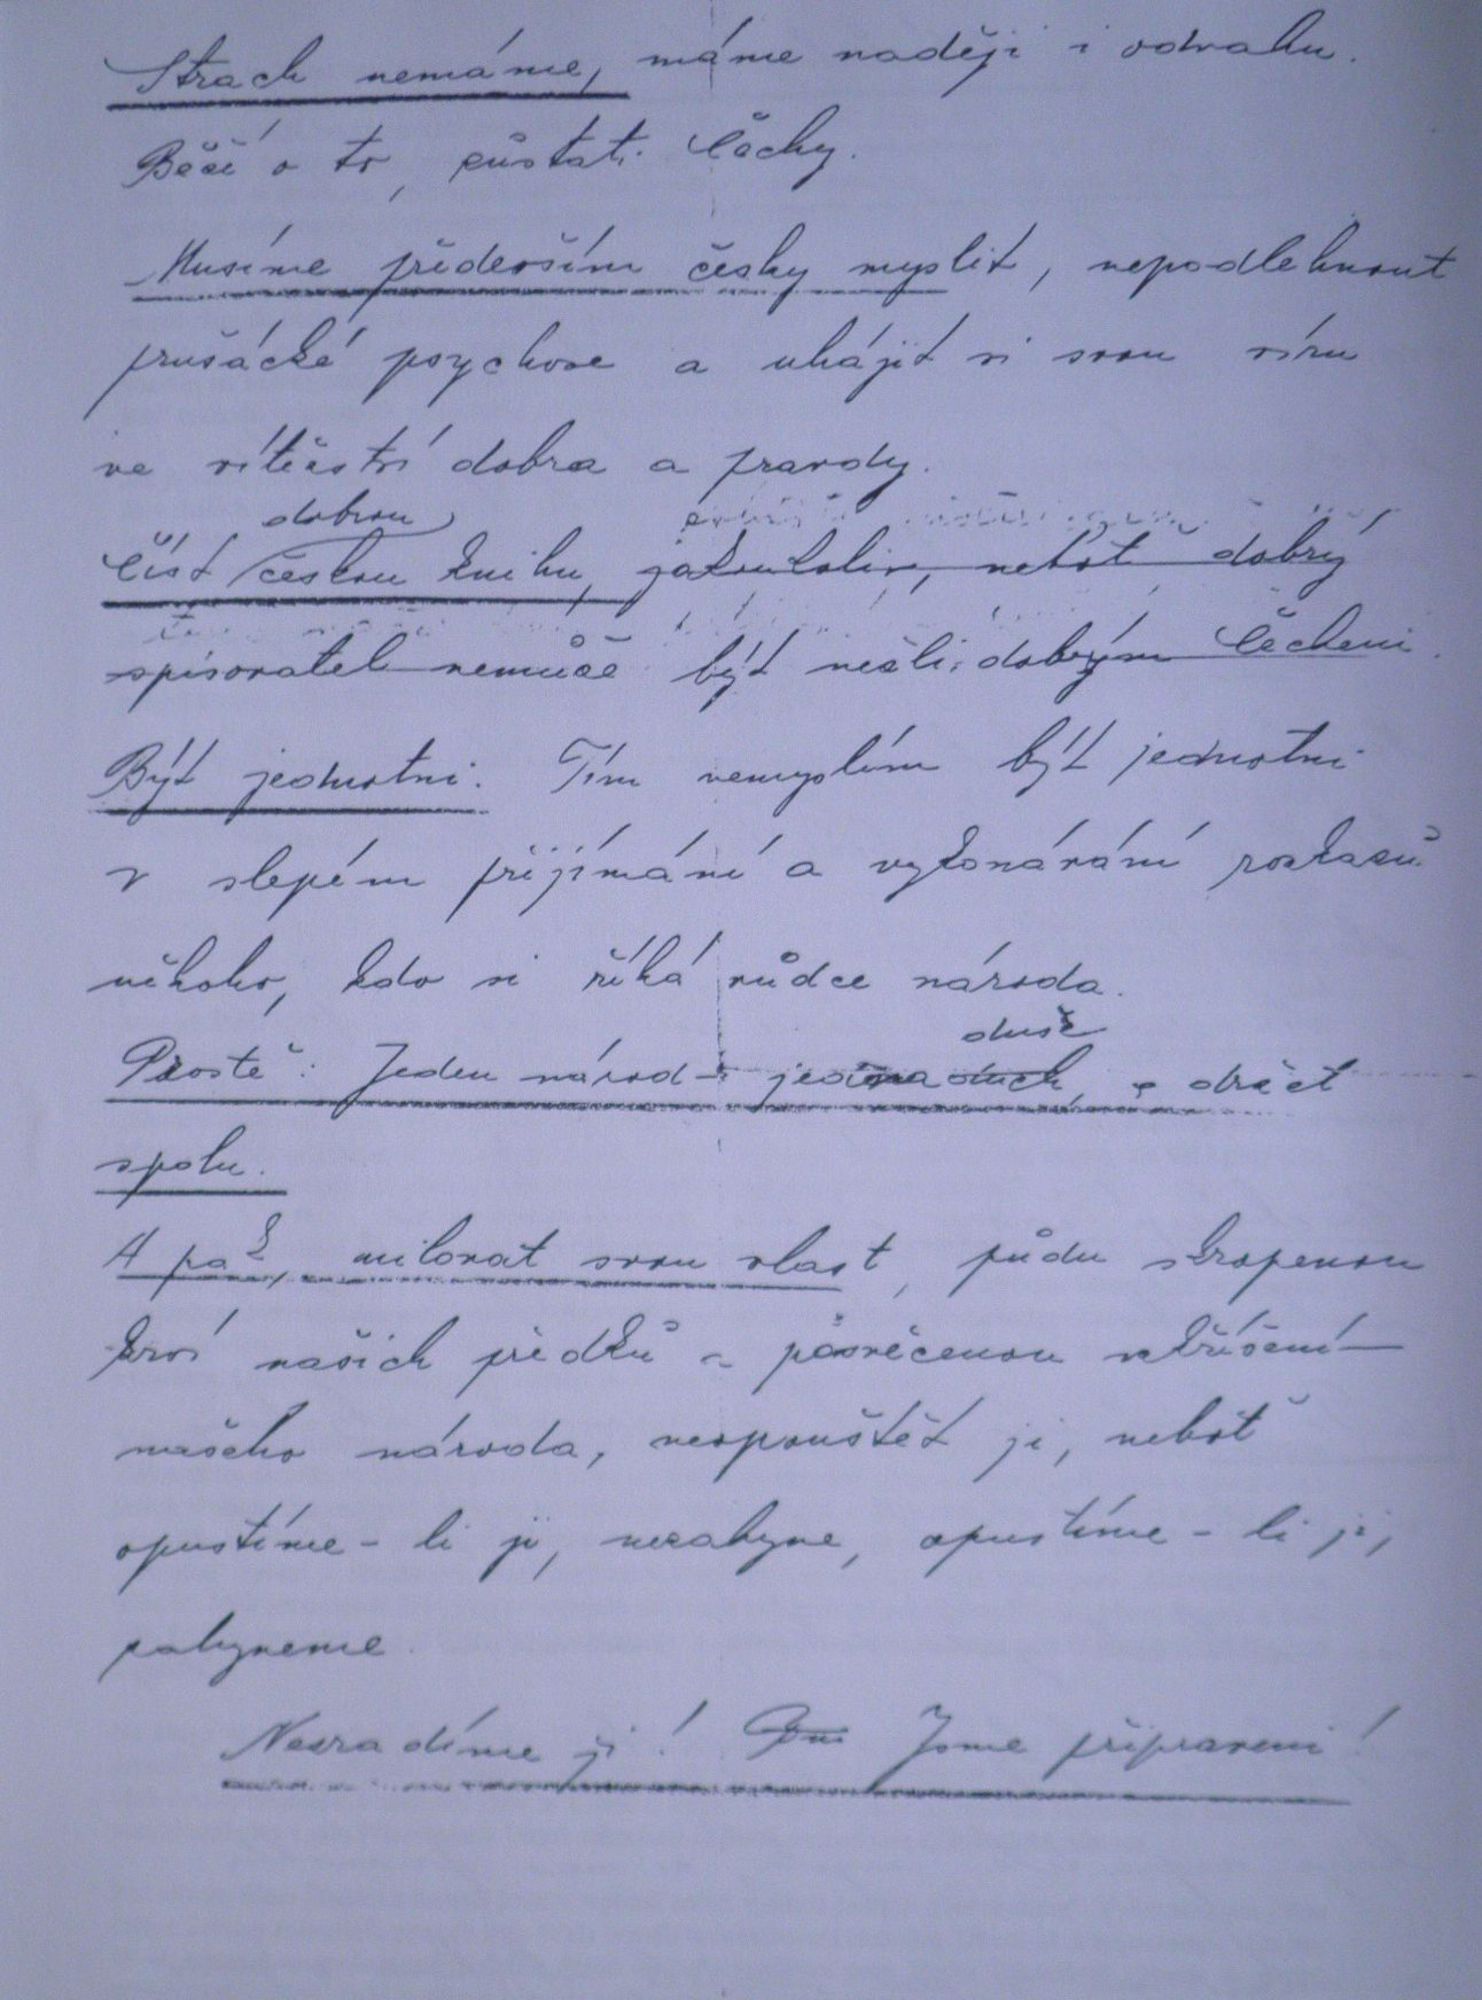 Strach nemáme, máme naději i odvahu.
Běží o to, zůstati Čechy.
Musíme především česky myslit, nepodlehnout
prušácké psychose a uhájit si svou víru
ve vítězství dobra a pravdy.
dobrou
Číst českou knihu, jakoukoliv, neboť dobrý
spisovatel nemůže být nežli dobrým Čechem.
Být jednotni. Tím nemyslím být jednotni
v slepém přijímání a vykonávání rozkazů
někoho, kdo si říká vůdce národa.
duše
Prostě: Jeden národ - jedna duch, a držet
spolu.
A pak, milovat svou vlast, půdu skropenou
krví našich předků a posvěcenou vzkříšením
našeho národa, neopouštět ji, neboť
opustíme-li ji, nezahyne, opustíme-li ji,
zahyneme.
Nezradíme ji! Jsme připraveni!